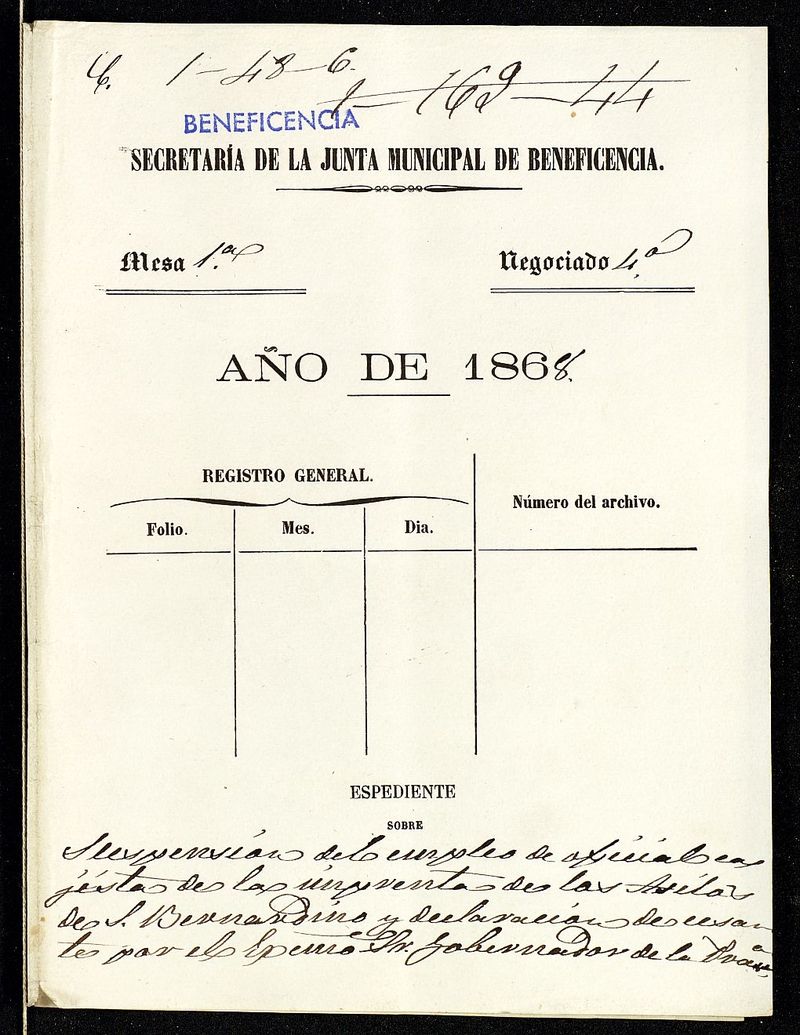 C. 1-48-6.
1-169-44
BENEFICENCIA
SECRETARÍA DE LA JUNTA MUNICIPAL DE BENEFICENCIA.
Mesa 1.ª Negociado 4.º
AÑO DE 1868.
REGISTRO GENERAL.
Número del archivo.
Folio. Mes. Dia.
ESPEDIENTE
SOBRE
Suspension del empleo de oficial ca
jista de la imprenta de los Asilos
de S. Bernardino y declaracion de cesan
te por el Excmo Sr. Gobernador de la Prov.ª